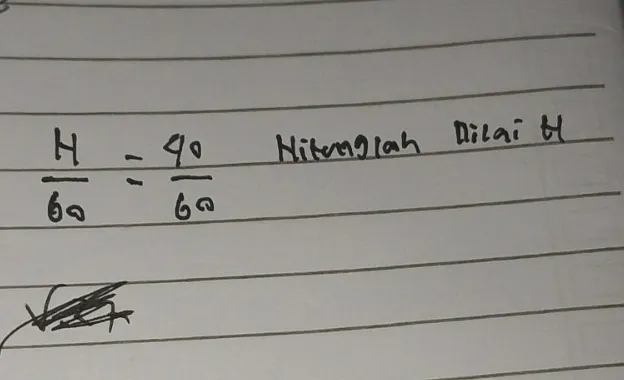 H/60 = 40/60 Hitunglah Nilai H